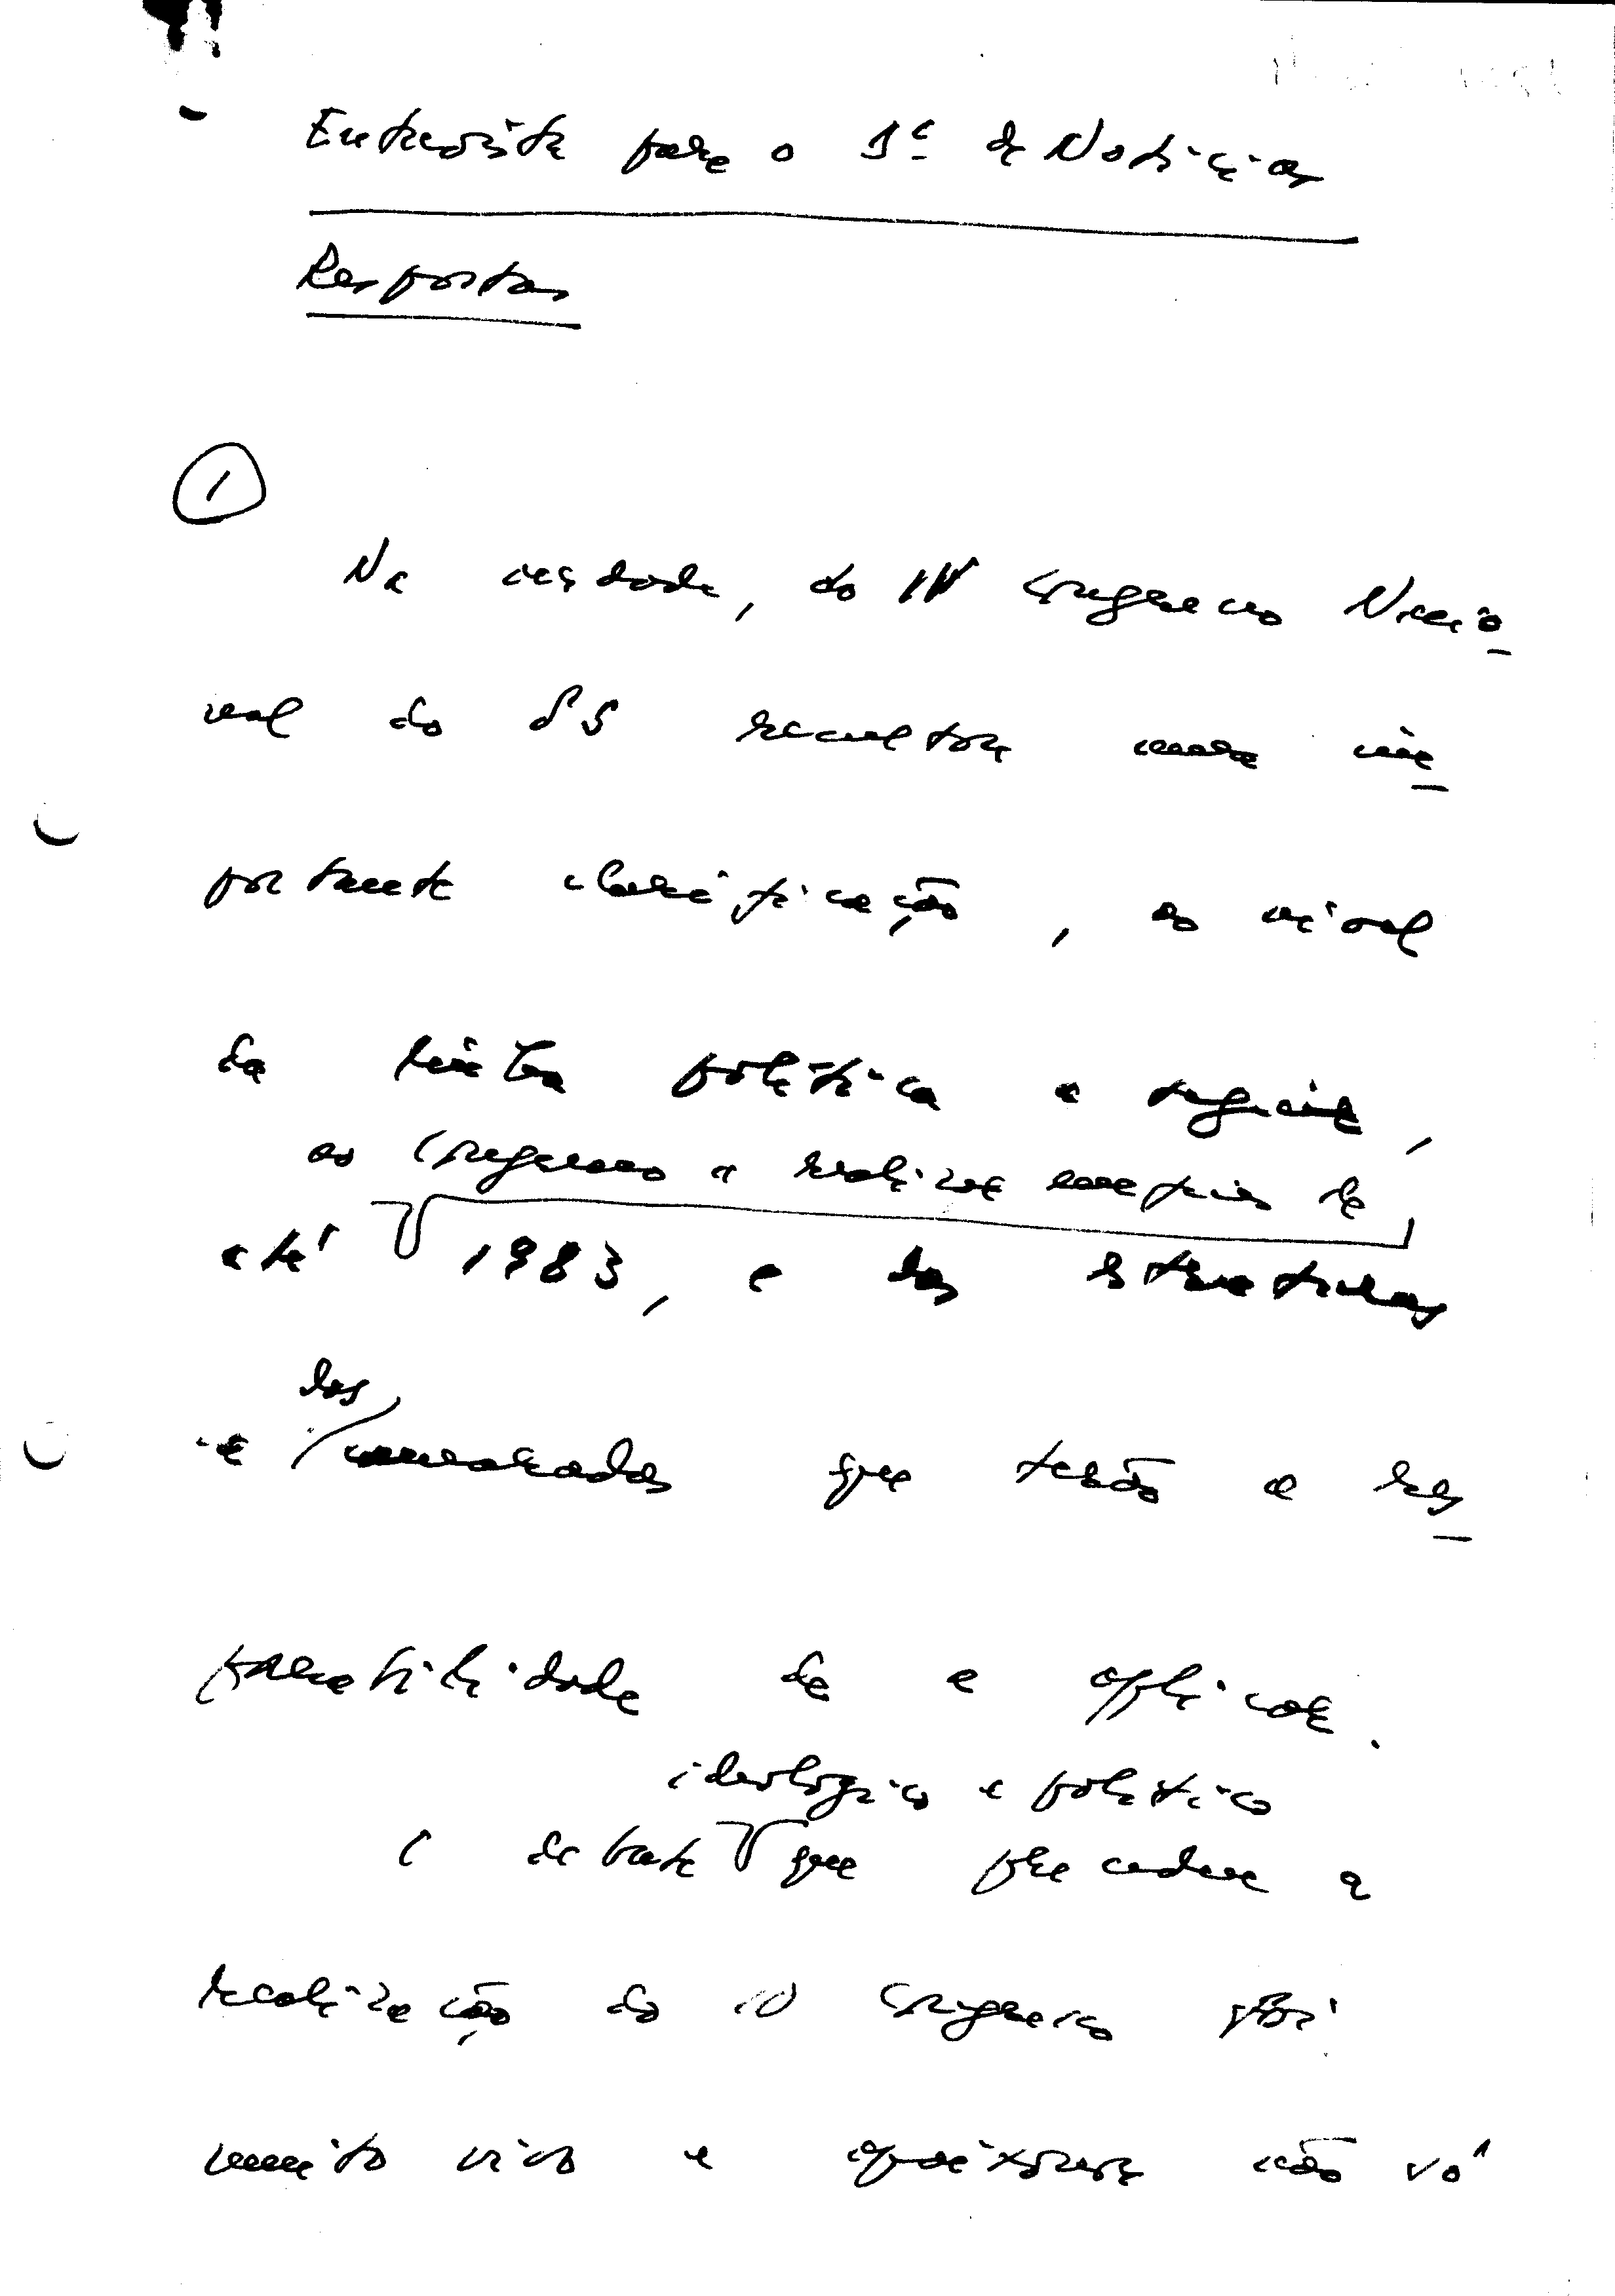 Entrevista para o J.º de Notícias
Respostas
1
Na verdade, do IV Congresso Nacio
nal do PS resultou uma im
portante clarificação, ao nível
da linha política a seguir,
ao Congresso a realizar em fins de
até 1983, e das estruturas
dos
e camaradas que terão a res
ponsabilidade de a aplicar.
ideológico e político
O debate que precedeu a
realização do IV Congresso foi
muito vivo e apaixonou não só